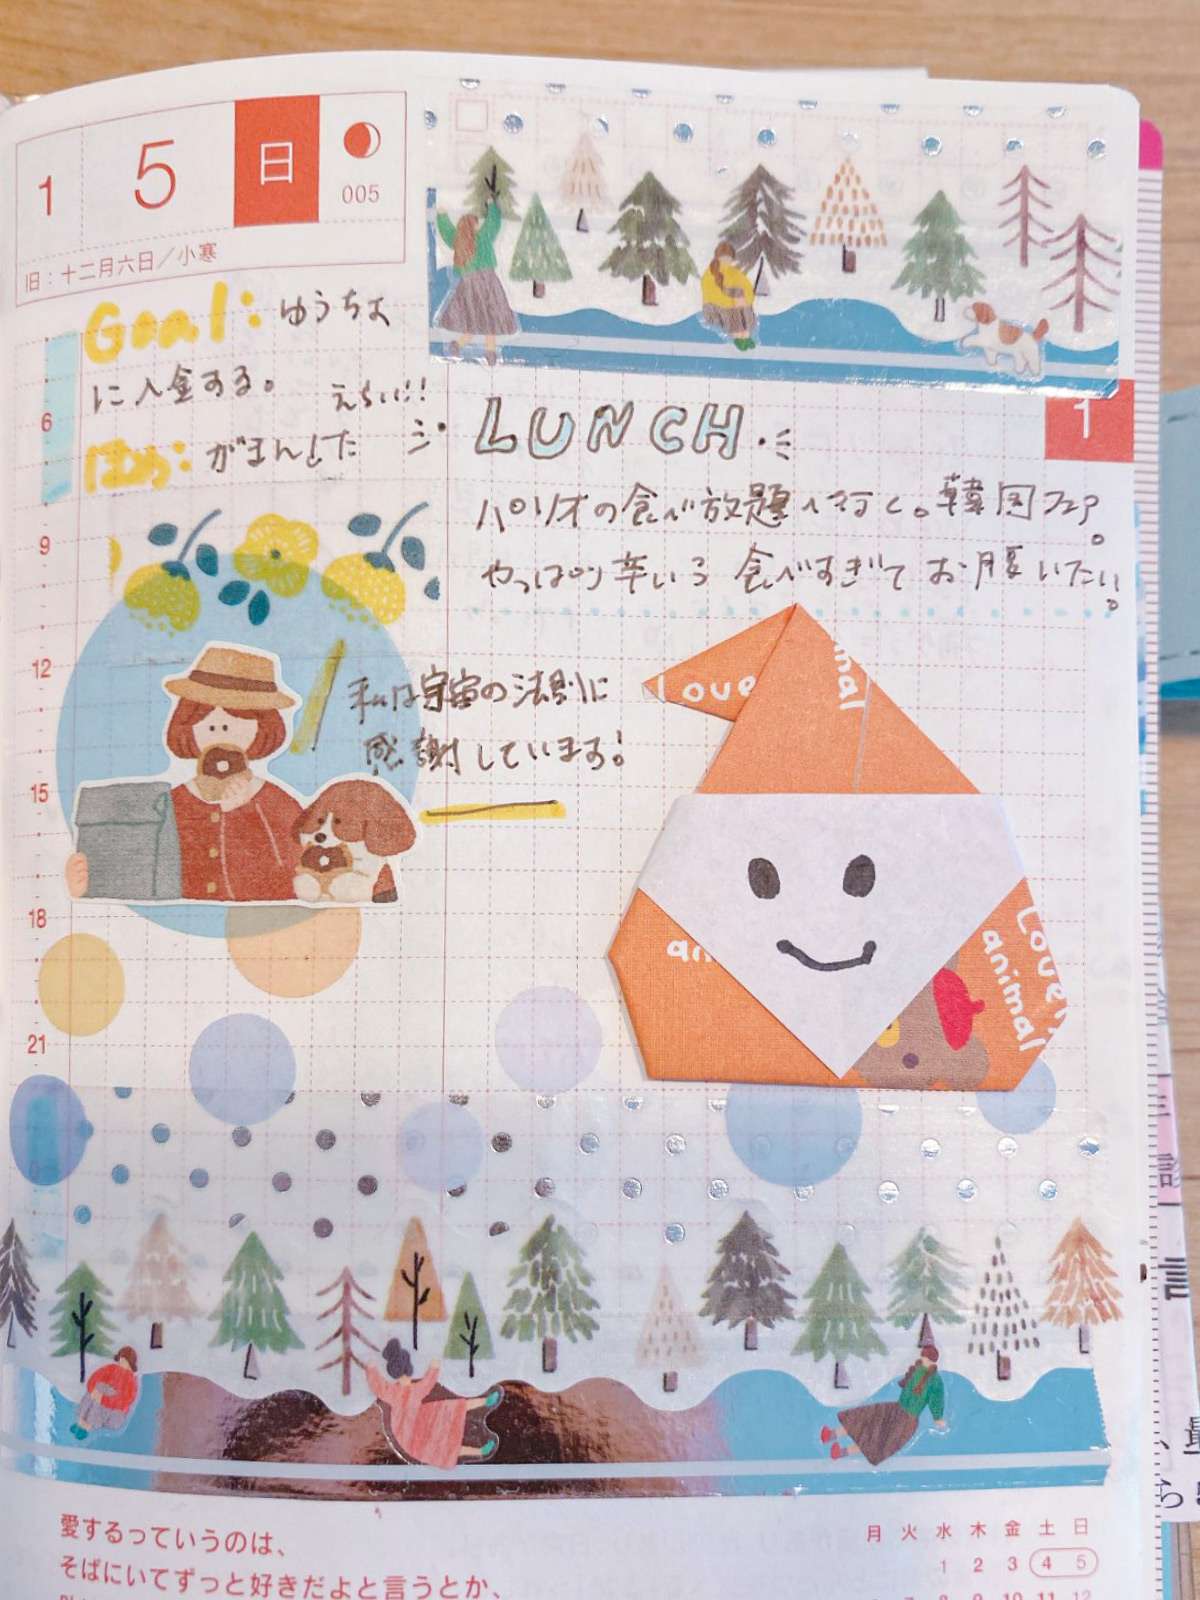 1 5 日
005
旧：十二月六日／小寒
Goal: ゆうちょ
に入金する。
えらい!!
ほめ: がまんした
LUNCH
1
パリオの食べ放題へ行く。韓国フェア。
やっぱり辛いろ 食べすぎてお腹いたい。
私は宇宙の法則に
感謝しています!
Love
nal
an
Lovely
animal
6
9
12
15
18
21
0
愛するっていうのは、
そばにいてずっと好きだよと言うとか、
月 火 水 木 金 土 日
1 2 3 4 5